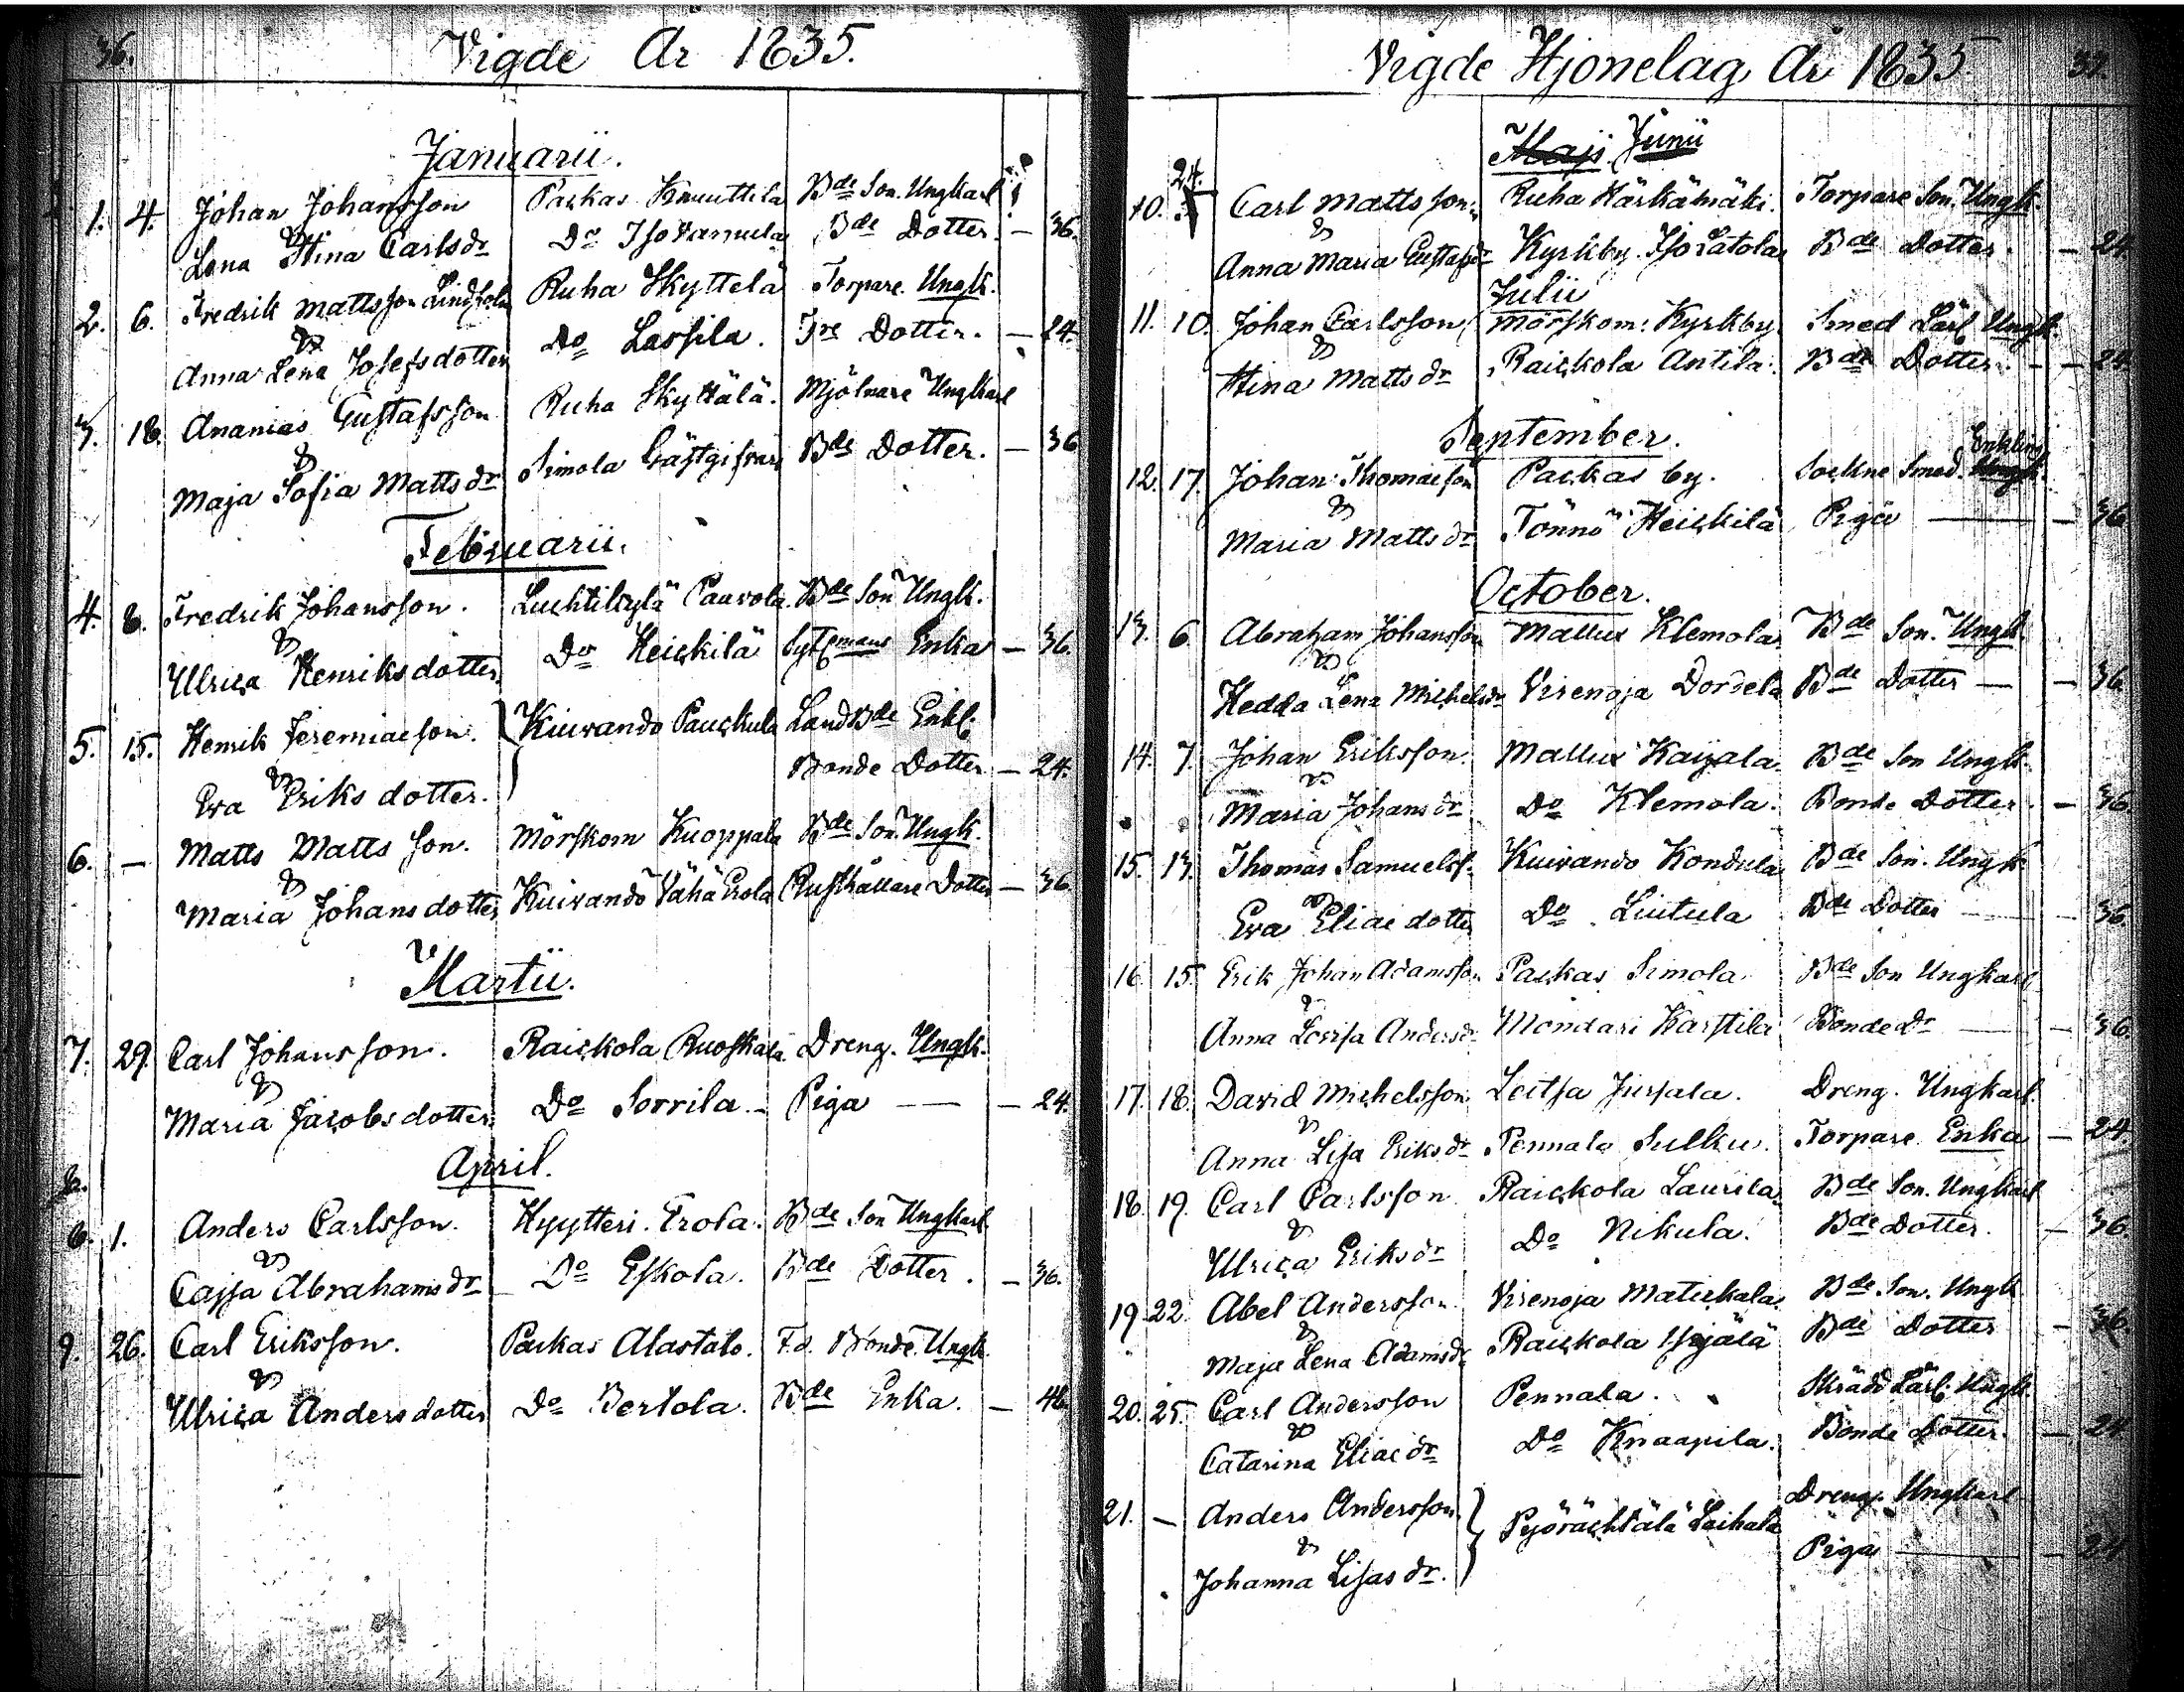 36.
Vigde År 1835.
Januarii.
1. 4. Johan Johansson Packas Knuuttila Bde Son. Ungkarl
& Lena Stina Carlsdr Do Isotamula Bde Dotter. — 36.
2. 6. Fredrik Mattsson Lindholm Ruha Skyttelä Torpare Ungk.
& Anna Lena Josefsdotter Do Lassila. Tre Dotter. — 24.
3. 18. Ananias Gustafsson Ruha Skyttälä. Mjölnare Ungkarl
& Maja Sofia Mattsdr Simola Gästgifvars Bde Dotter. — 36
Februarii.
4. 8. Fredrik Johansson. Luchtikylä Paavola Bde Son Ungk.
& Ulrica Henriksdotter Do Heickilä Enka — 36.
5. 15. Henrik Jeremiaeson. Kuivando Pauckula LandBde Enkl.
& Eva Eriksdotter. Bonde Dotter — 24.
6. — Matts Matts son. Mörskom Kuoppala Bde Son. Ungk.
& Maria Johansdotter Kuivando Vähä Erola Rusthållare Dotter — 36.
Martii.
7. 29. Carl Johansson. Raickola Ruoskala Dreng. Ungk.
& Maria Jacobsdotter. Do Sorrila. Piga — — 24.
April.
8.
8. 1. Anders Carlsson. Kyytteri. Erola. Bde Son Ungkarl
& Cajsa Abrahamsdr Do Eskola. Bde Dotter. — 36.
9. 26. Carl Eriksson. Packas Alastalo. F.d. Bonde. Ungk.
& Ulrica Andersdotter Do Bertola. Bde Enka. — 48.
Vigde Hjonelag År 1835. 37.
Maji Junii
10. 24. Carl Mattsson. Ruha Härkämäki. Torpare Son. Ungk.
& Anna Maria Gustafsdr Kyrkby. Iso Latola Bde Dotter. — 24
Julii
11. 10. Johan Carlsson Mörskom: Kyrkby Smed Lärl. Ungk.
& Stina Mattsdr Raickola Antila. Bde Dotter. — 24.
September.
12. 17. Johan Thomaeson Packas by. Sockne Smed. Enkling
& Maria Mattsdr Tönnö Heickilä Piga — — 36
October.
13. 6 Abraham Johansson Mallux Klemola Bde Son. Ungk.
& Hedda Lena Michelsdr Virenoja Dordela Bde Dotter — — 36
14. 7. Johan Eriksson. Mallux Kaijala. Bde Son Ungk.
& Maria Johansdr Do Klemola. Bonde Dotter. — 36
15. 13. Thomas Samuelss. Kuivando Kondula Bde Son. Ungk.
& Eva Eliaedotter Do Liutula Bde Dotter — — 36.
16. 15. Erik Johan Adamsson Packas Simola. Bde Son Ungkarl
& Anna Lovisa Andersdr Mondari Karstila Bonde Dr — — 36
17. 18. David Michelsson Leitsa Jussala. Dreng. Ungkarl.
& Anna Lisa Eriksdr Pennala Sulku. Torpare Enka — 24
18. 19. Carl Carlsson Raickola Laurila Bde Son. Ungkarl
& Ulrica Eriksdr Do Nikula. Bde Dotter. — 36.
19. 22. Abel Andersson. Virenoja Matickala. Bde Son. Ungk
& Maja Lena Adamsdr Raickola Bde Dotter — 36.
20. 25. Carl Andersson Pennala. Skrädd Lärl. Ungk.
& Catarina Eliaedr Do Knaapila. Bonde Dotter. — 24
21. — Anders Andersson Pyörächtälä Laihala Dreng. Ungkarl
& Johanna Lisasdr. Piga — — 24